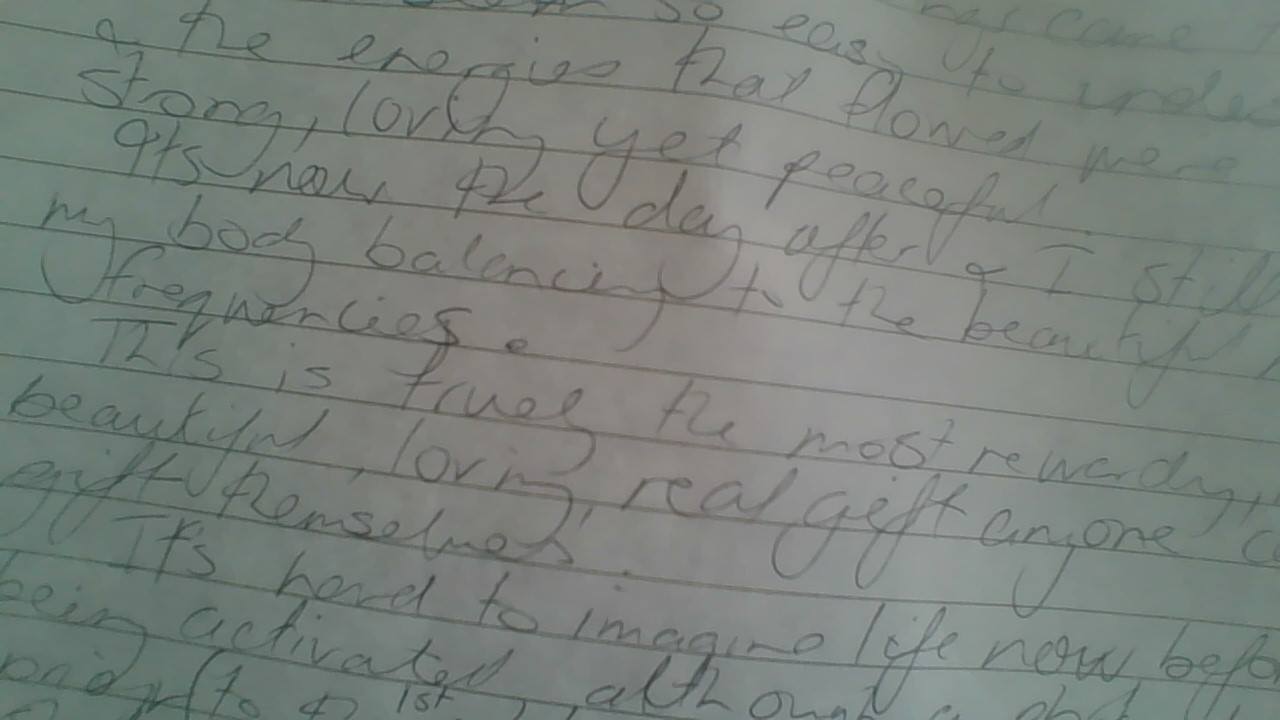 so easy to
& the energies that flowed were
strong, loving yet peaceful.
Its now the day after & I still
my body balancing to the beautiful
frequencies.
This is truely the most rewarding,
beautiful, loving, real gift anyone
gift themselves.
It's hard to imagine life now befo
being activated, although a
to 1st